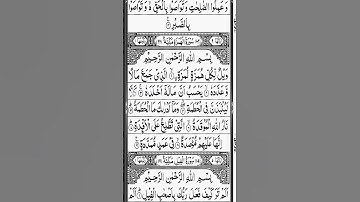 وَ عَمِلُوا الصّٰلِحٰتِ وَ تَوَاصَوْا بِالْحَقِّ ۙ وَ تَوَاصَوْا
بِالصَّبْرِ
سُوْرَةُ الْهُمَزَةِ مَكِّيَّةٌ
بِسْمِ اللّٰهِ الرَّحْمٰنِ الرَّحِيْمِ
وَيْلٌ لِّكُلِّ هُمَزَةٍ لُّمَزَةٍ ۙ الَّذِيْ جَمَعَ مَالًا
وَّ عَدَّدَهٗ ۙ يَحْسَبُ اَنَّ مَالَهٗۤ اَخْلَدَهٗ ۚ كَلَّا
لَيُنْۢبَذَنَّ فِي الْحُطَمَةِ ۖ وَمَاۤ اَدْرٰىكَ مَا الْحُطَمَةُ ؕ
نَارُ اللّٰهِ الْمُوْقَدَةُ ۙ الَّتِيْ تَطَّلِعُ عَلَى الْاَفْـِٕدَةِ ؕ
اِنَّهَا عَلَيْهِمْ مُّؤْصَدَةٌ ۙ فِيْ عَمَدٍ مُّمَدَّدَةٍ
سُوْرَةُ الْفِيْلِ مَكِّيَّةٌ
بِسْمِ اللّٰهِ الرَّحْمٰنِ الرَّحِيْمِ
اَلَمْ تَرَ كَيْفَ فَعَلَ رَبُّكَ بِاَصْحٰبِ الْفِيْلِ ؕ اَلَمْ